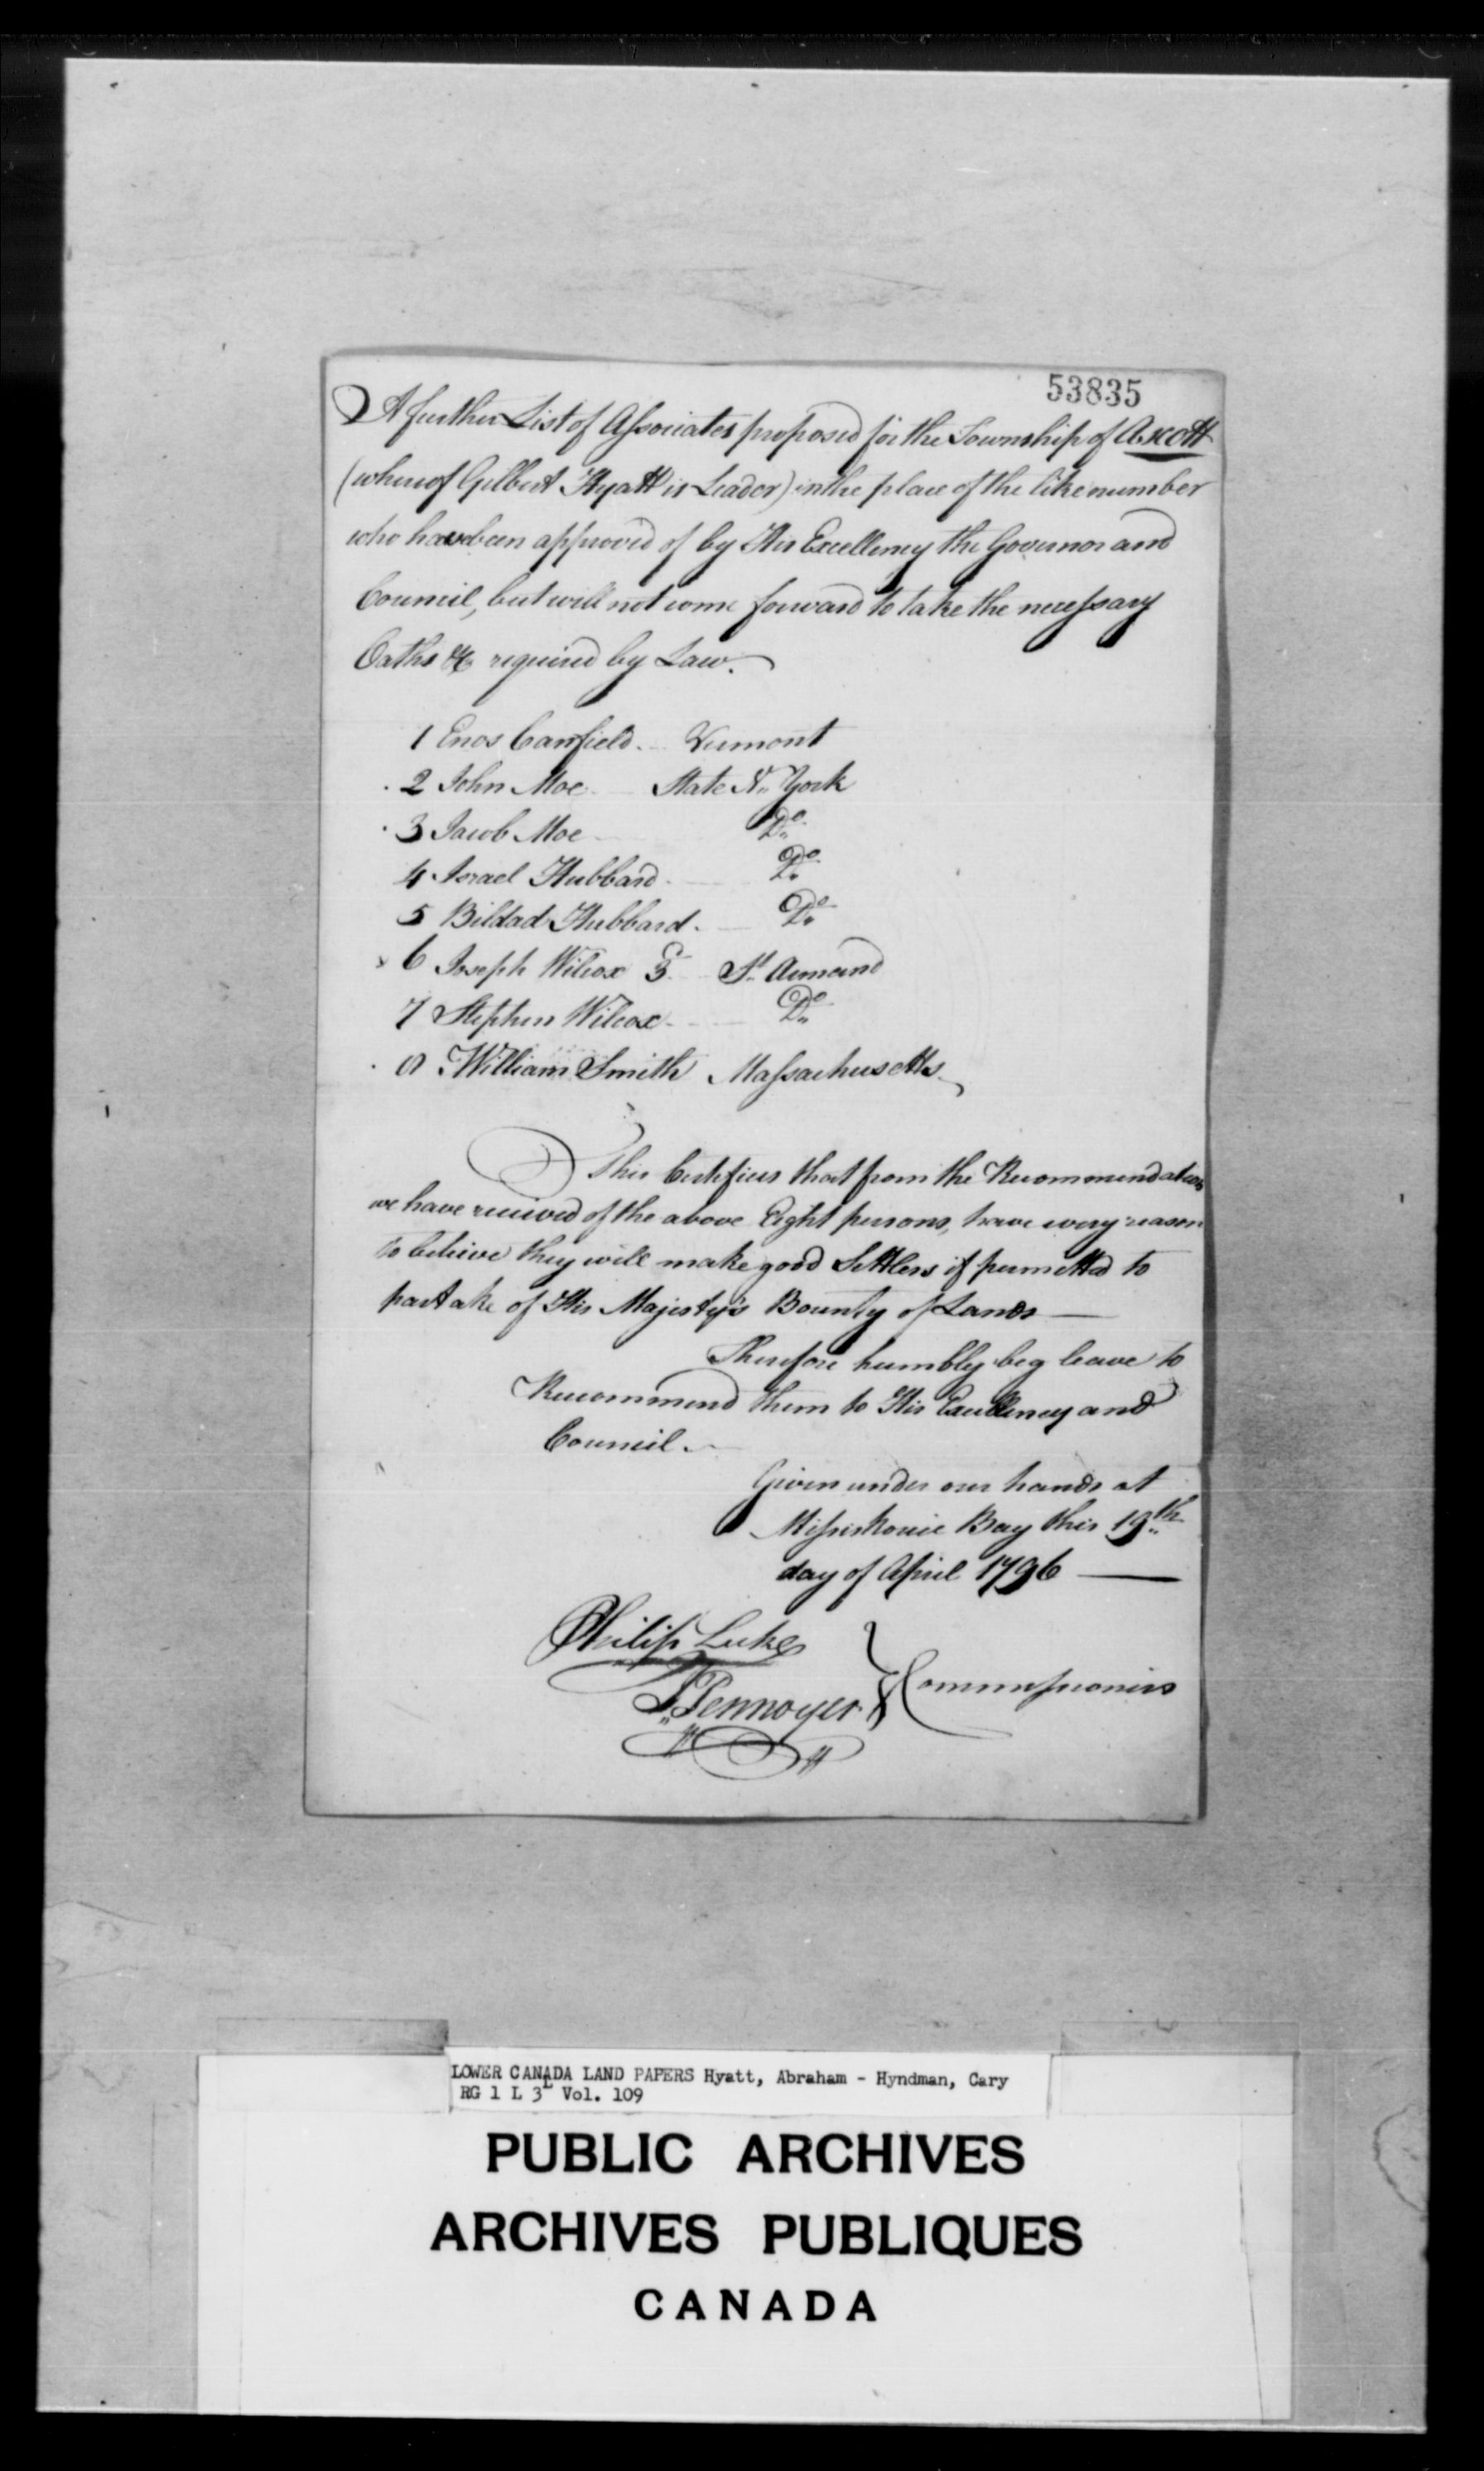 53835
A further List of Associates proposed for the Township of Ascott
(whereof Gilbert Hyatt is Leador) in the place of the like number
who have been approved of by His Excellency the Governor and
Council, but will not come forward to take the necessary
Oaths &c required by Law.
1 Enos Canfield. Vermont
2 John Moe State N. York
3 Jacob Moe Do
4 Israel Hubbard Do
5 Bildad Hubbard. Do
x 6 Joseph Wilcox 3d St Armand
7 Stephen Wilcox Do
8 William Smith Massachusetts
This Certifies that from the Recommendations
we have received of the above Eight persons, have every reason
to believe they will make good Settlers if permitted to
partake of His Majesty's Bounty of Lands —
Therefore humbly beg leave to
Recommend them to His Excellency and
Council.
Given under our hands at
Missiskouie Bay this 19th
day of April 1796 —
Philip Luke
J Pennoyer } Commissioners
LOWER CANADA LAND PAPERS Hyatt, Abraham - Hyndman, Cary
RG 1 L 3L Vol. 109
PUBLIC ARCHIVES
ARCHIVES PUBLIQUES
CANADA